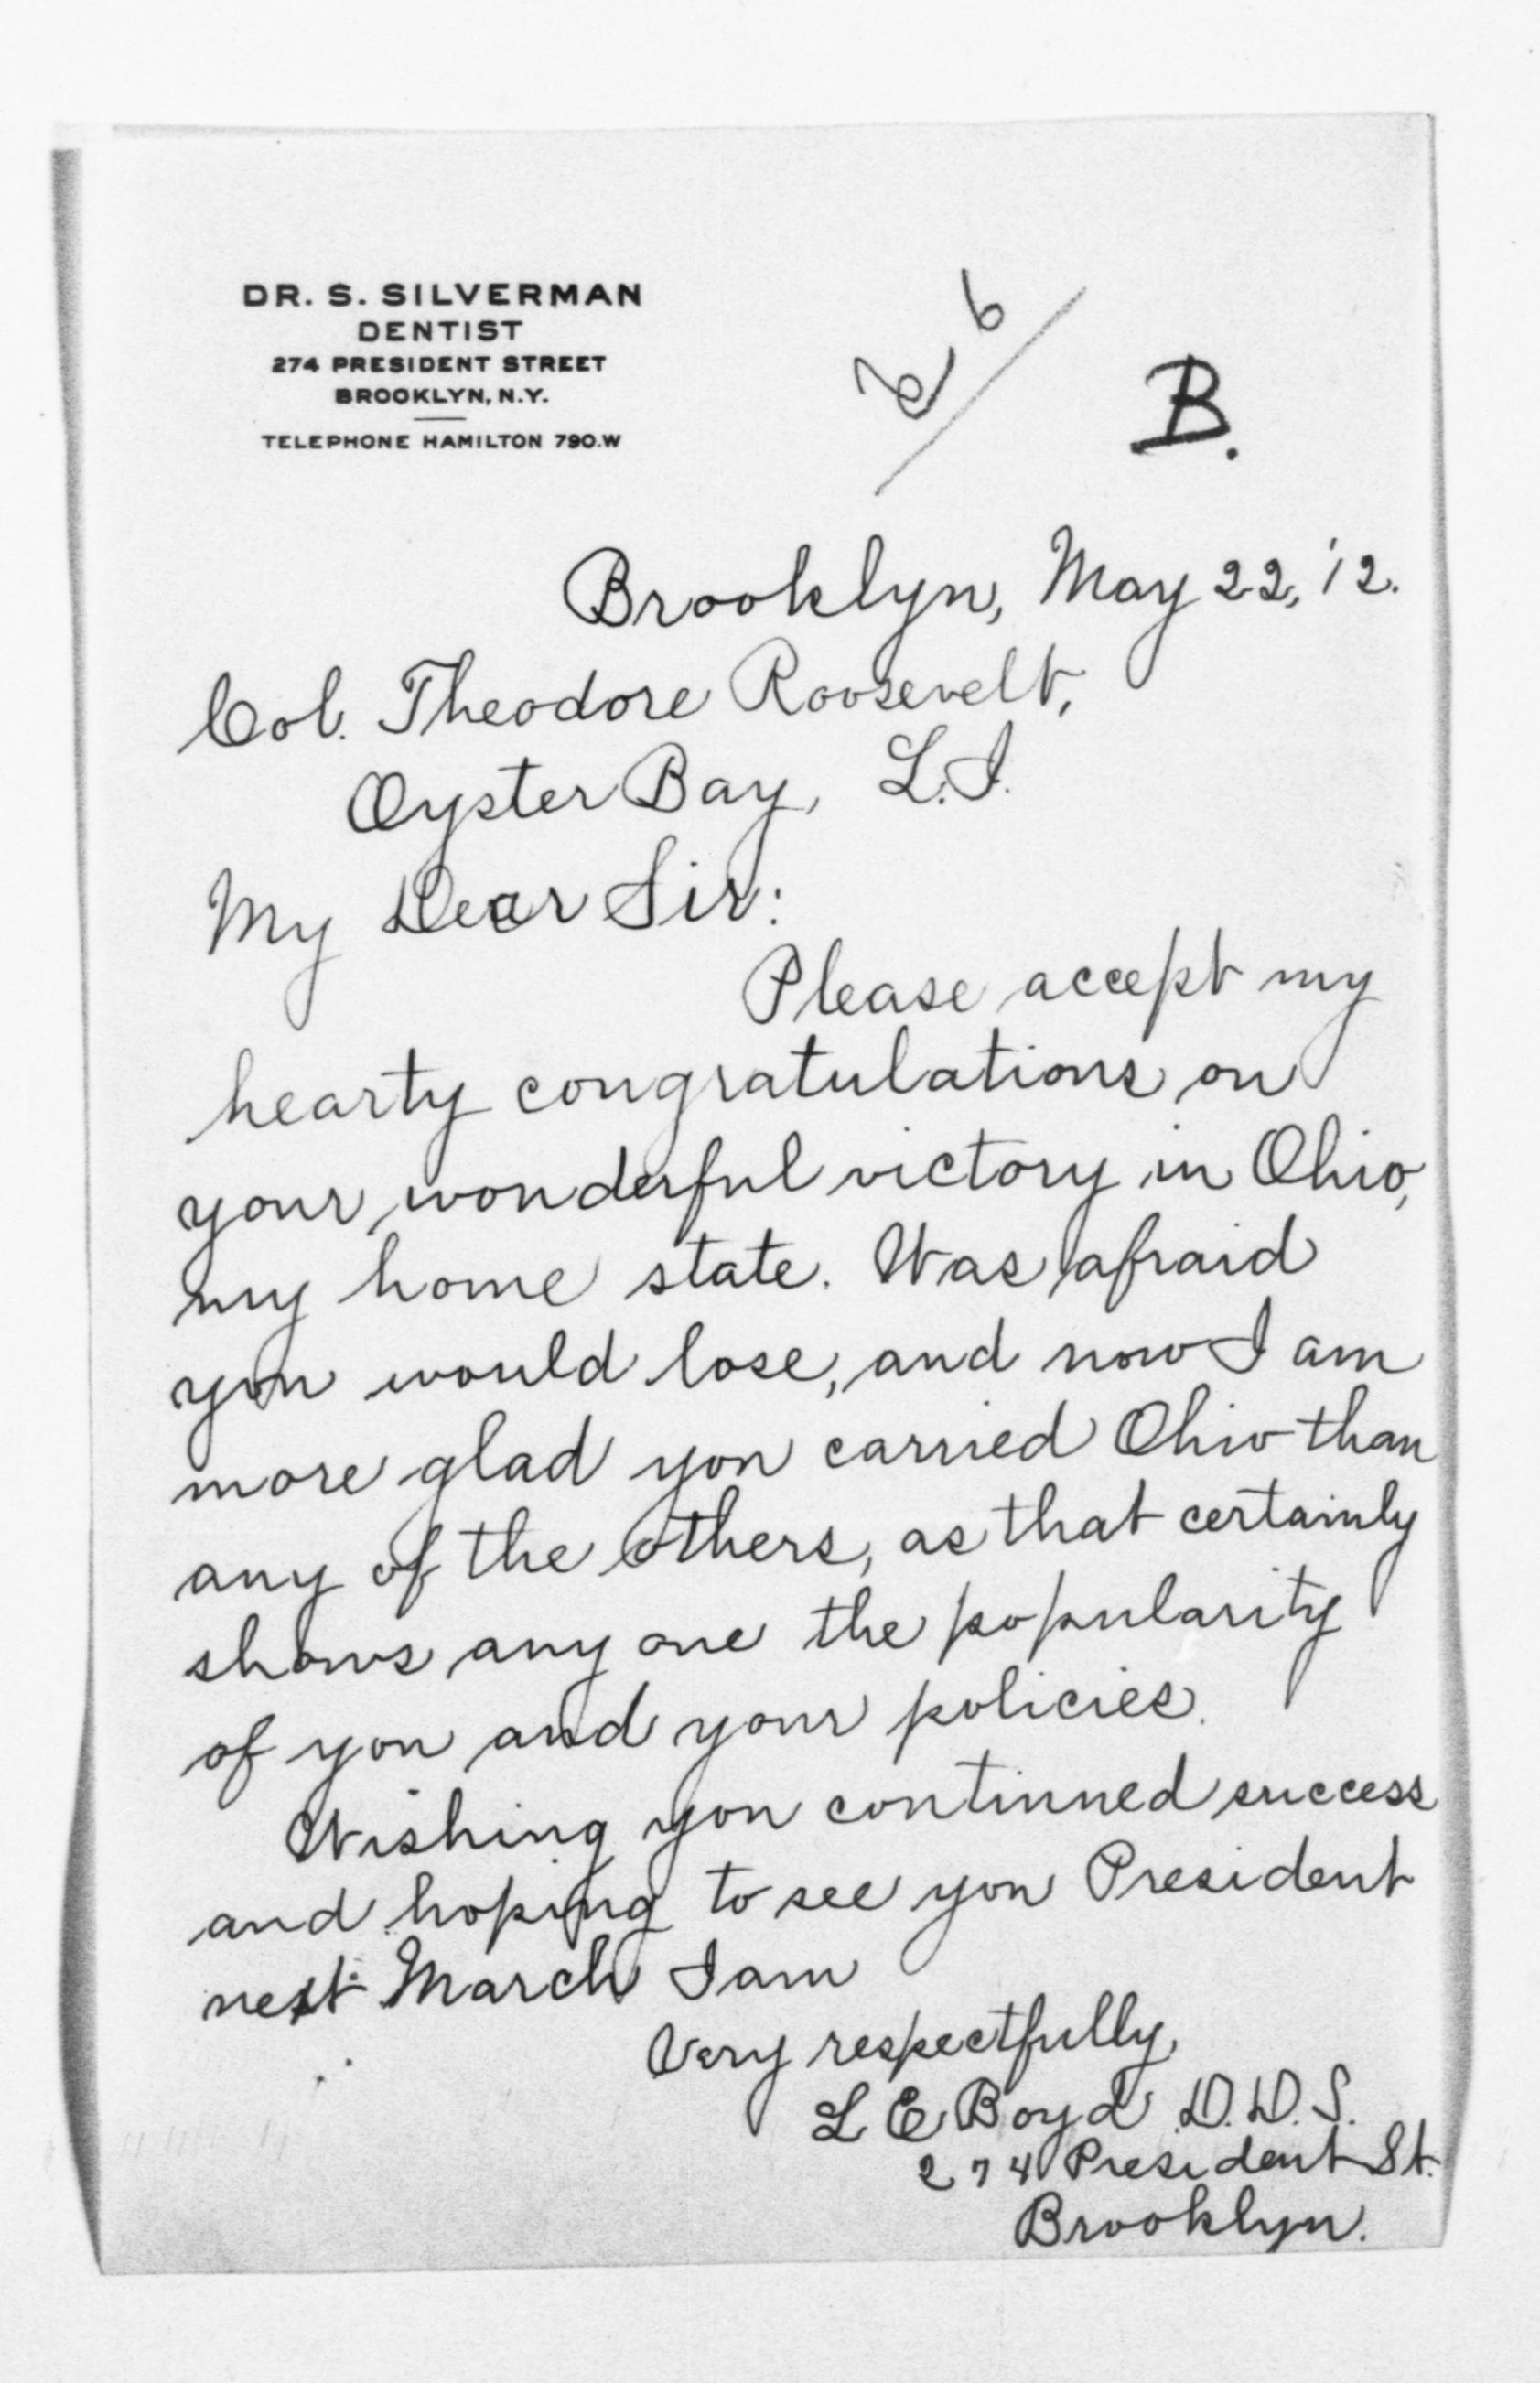 DR. S. SILVERMAN
DENTIST
274 PRESIDENT STREET
BROOKLYN, N.Y.
TELEPHONE HAMILTON 790.W
B.
Brooklyn, May 22, '12.
Col. Theodore Roosevelt,
Oyster Bay, L.I.
My Dear Sir:
Please accept my
hearty congratulations on
your wonderful victory in Ohio,
my home state. Was afraid
you would lose, and now I am
more glad you carried Ohio than
any of the others, as that certainly
shows any one the popularity
of you and your policies.
Wishing you continued success
and hoping to see you President
next March I am
Very respectfully,
L E Boyd D.D.S.
274 President St.
Brooklyn.